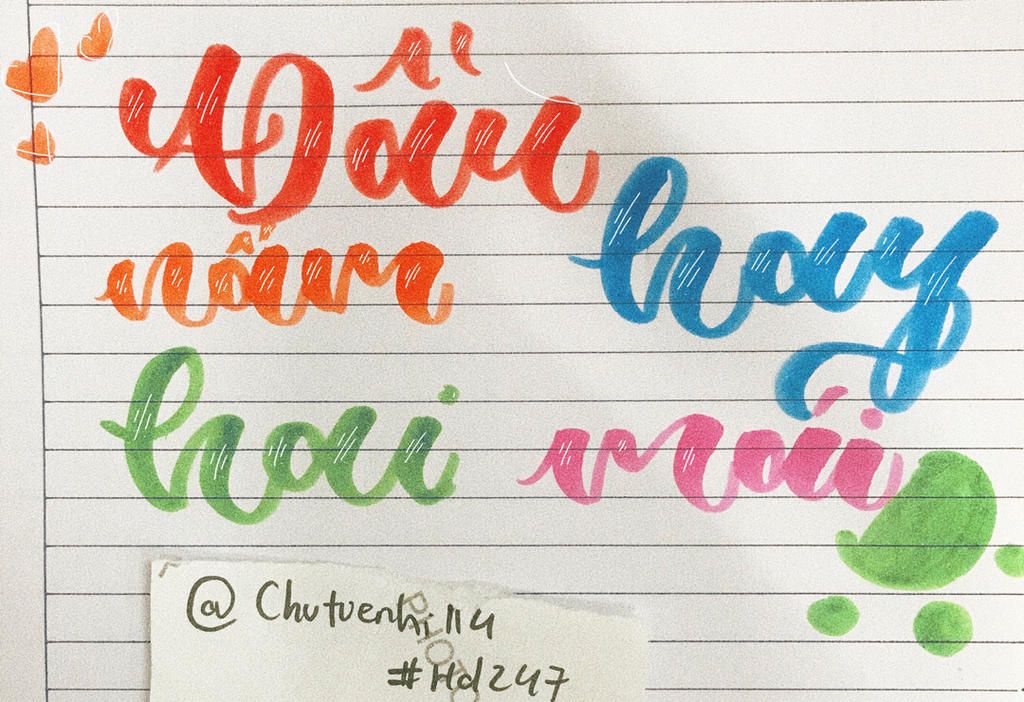 Đầu
nấm
hay
hai mái
@Chutuenhi114
#Hd247